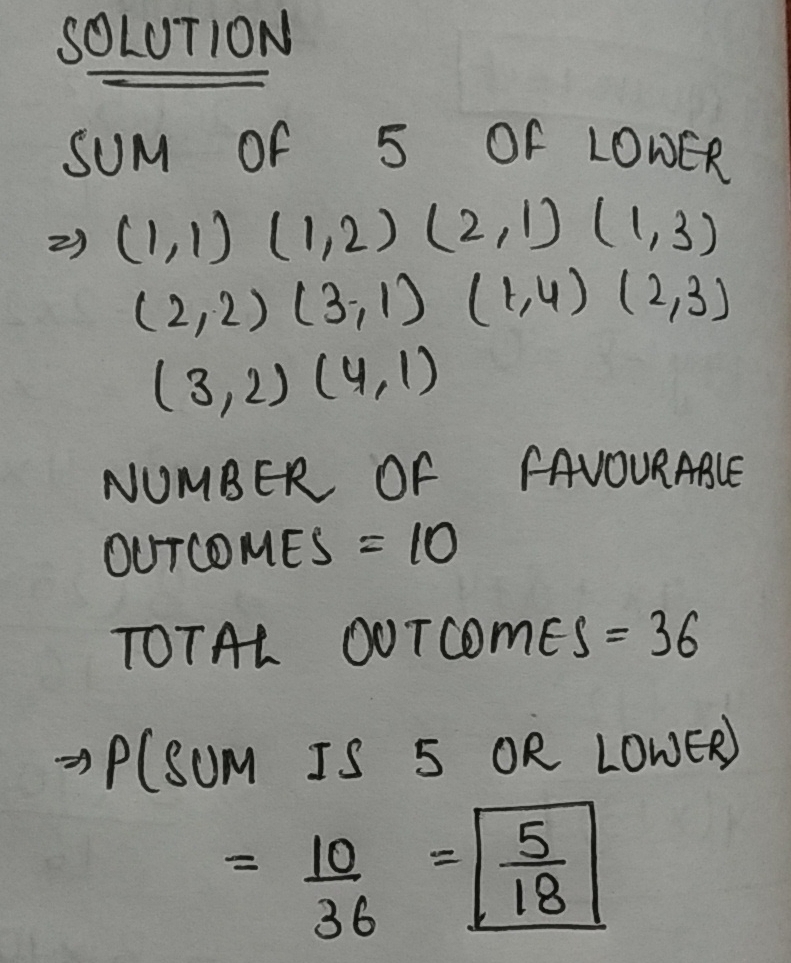 SOLUTION
SUM OF 5 OF LOWER
⇒ (1,1) (1,2) (2,1) (1,3)
(2,2) (3,1) (1,4) (2,3)
(3,2) (4,1)
NUMBER OF FAVOURABLE
OUTCOMES = 10
TOTAL OUTCOMES = 36
⇒ P(SUM IS 5 OR LOWER)
= 10/36 = 5/18